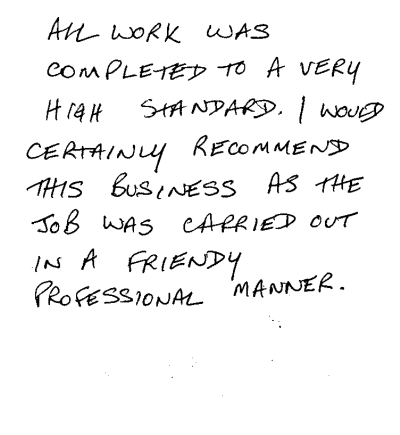 ALL WORK WAS
COMPLETED TO A VERY
HIGH STANDARD. I WOULD
CERTAINLY RECOMMEND
THIS BUSINESS AS THE
JOB WAS CARRIED OUT
IN A FRIENDY
PROFESSIONAL MANNER.